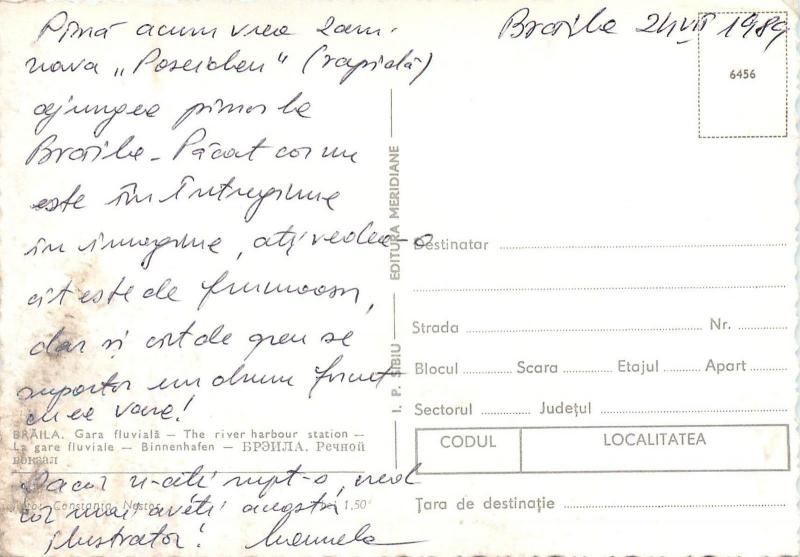 Brăila 24 VII 1989
Până acum vreo 2 ani
nava „Poseidon" (rapidă)
ajungea până la
Brăila - Păcat că nu
este în întregime
în imagine, ați vedea-o
cât este de frumoasă,
dar și cât de greu se
suportă un drum făcut
cu ea vara!
BRĂILA. Gara fluvială — The river harbour station —
La gare fluviale — Binnenhafen — БРЭИЛА. Речной
вокзал
Dacă n-ați rupt-o, cred
Foto: Constanța Nestor
Lei 1,50
că mai aveți această
ilustrată! Manuela
I. P. SIBIU — EDITURA MERIDIANE
6456
Destinatar
Strada Nr.
Blocul Scara Etajul Apart
Sectorul Județul
CODUL LOCALITATEA
Țara de destinație